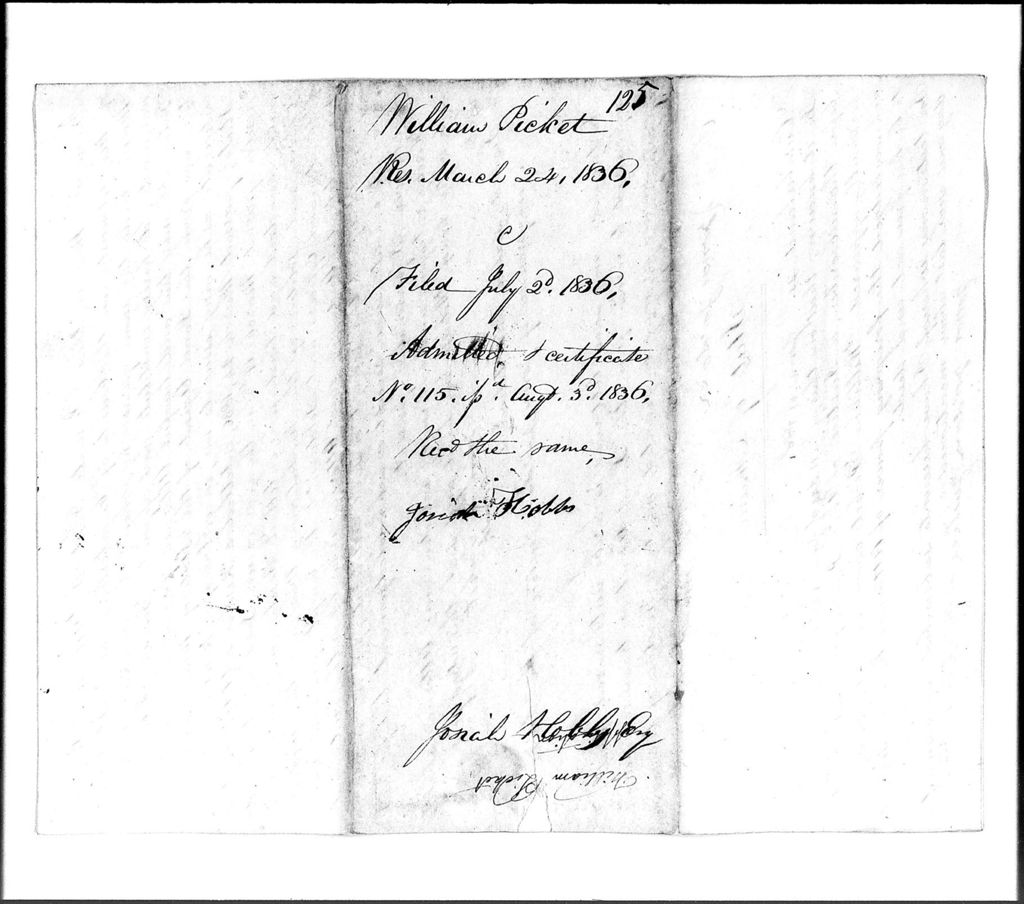 125
William Picket
Res. March 24, 1836,
C
Filed July 2d. 1836,
Admitted, & certificate
No. 115. isd. Augt. 3d. 1836,
Recd the same,
Josiah Hobbs
Josiah Hobbs Esq
William Picket